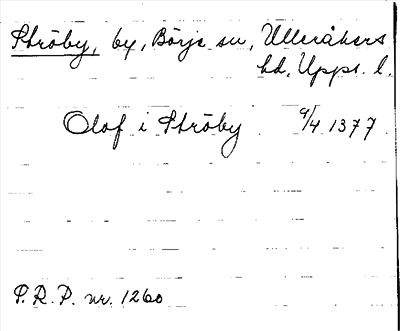 Ströby, by, Börje sn, Ulleråkers
hd, Upps. l.
Olof i Ströby 9/4 1377
P.R.P. nr. 1260